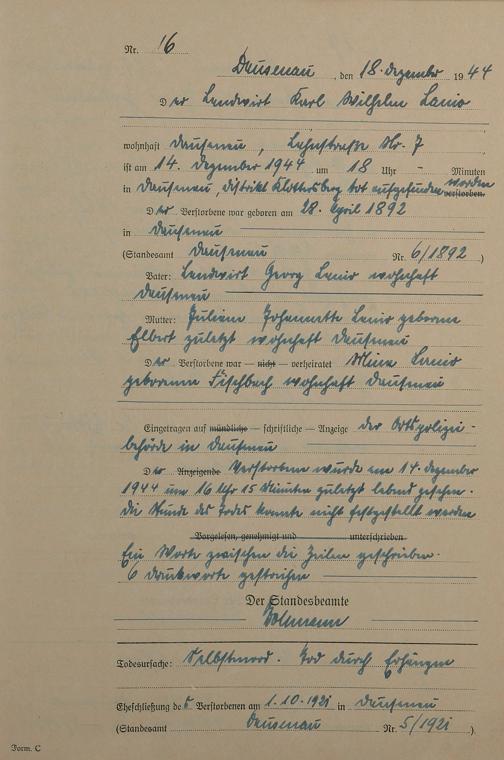 Nr. 16
Dausenau, den 18. Dezember 1944
Der Landwirt Karl Wilhelm Lanio
wohnhaft Dausenau, Lahnstraße Nr. 7
ist am 14. Dezember 1944 um 18 Uhr - Minuten
in Dausenau, Distrikt Klostersberg tot aufgefunden worden verstorben.
Der Verstorbene war geboren am 28. April 1892
in Dausenau
(Standesamt Dausenau Nr. 6/1892)
Vater: Landwirt Georg Lanio wohnhaft
Dausenau
Mutter: Juliane Johannette Lanio geborene
Elbert zuletzt wohnhaft Dausenau
Der Verstorbene war — nicht — verheiratet Mina Lanio
geborenen Fischbach wohnhaft Dausenau
Eingetragen auf mündliche — schriftliche — Anzeige der Ortspolizei-
behörde in Dausenau
Der Anzeigende Verstorbene wurde am 14. Dezember
1944 um 16 Uhr 15 Minuten zuletzt lebend gesehen.
Die Stunde des Todes konnte nicht festgestellt werden
Vorgelesen, genehmigt und unterschrieben.
Ein Worte zwischen die Zeilen geschrieben.
6 Druckworte gestrichen
Der Standesbeamte
Todesursache: Selbstmord. Tod durch Erhängen
Eheschließung des Verstorbenen am 1.10.1921 in Dausenau
(Standesamt Dausenau Nr. 5/1921)
Form. C